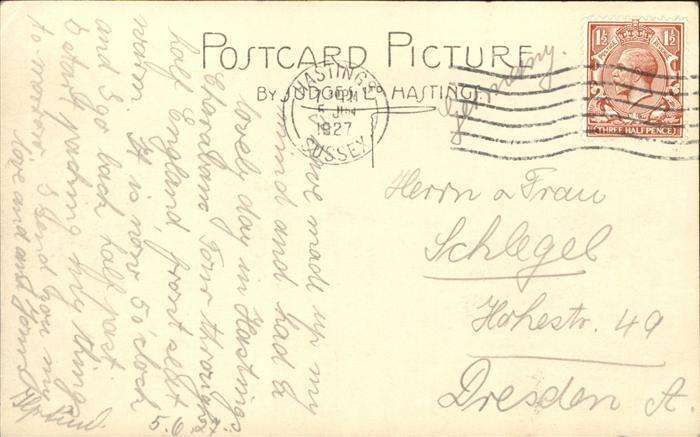 POSTCARD PICTURE
BY JUDGES LTD HASTINGS
HASTINGS
5 JUN
1927
SUSSEX
1½ 1½
THREE HALFPENCE
Germany.
Herrn u Frau
Schlegel
Hohestr. 49
Dresden A.
5.6.27
I've made up my
mind and had a
lovely day in Hastings.
Tour through
half England, frost self
warm. It is now 5 o'clock
and I go back half past
I start packing my things
to-morrow. I send you my
love and